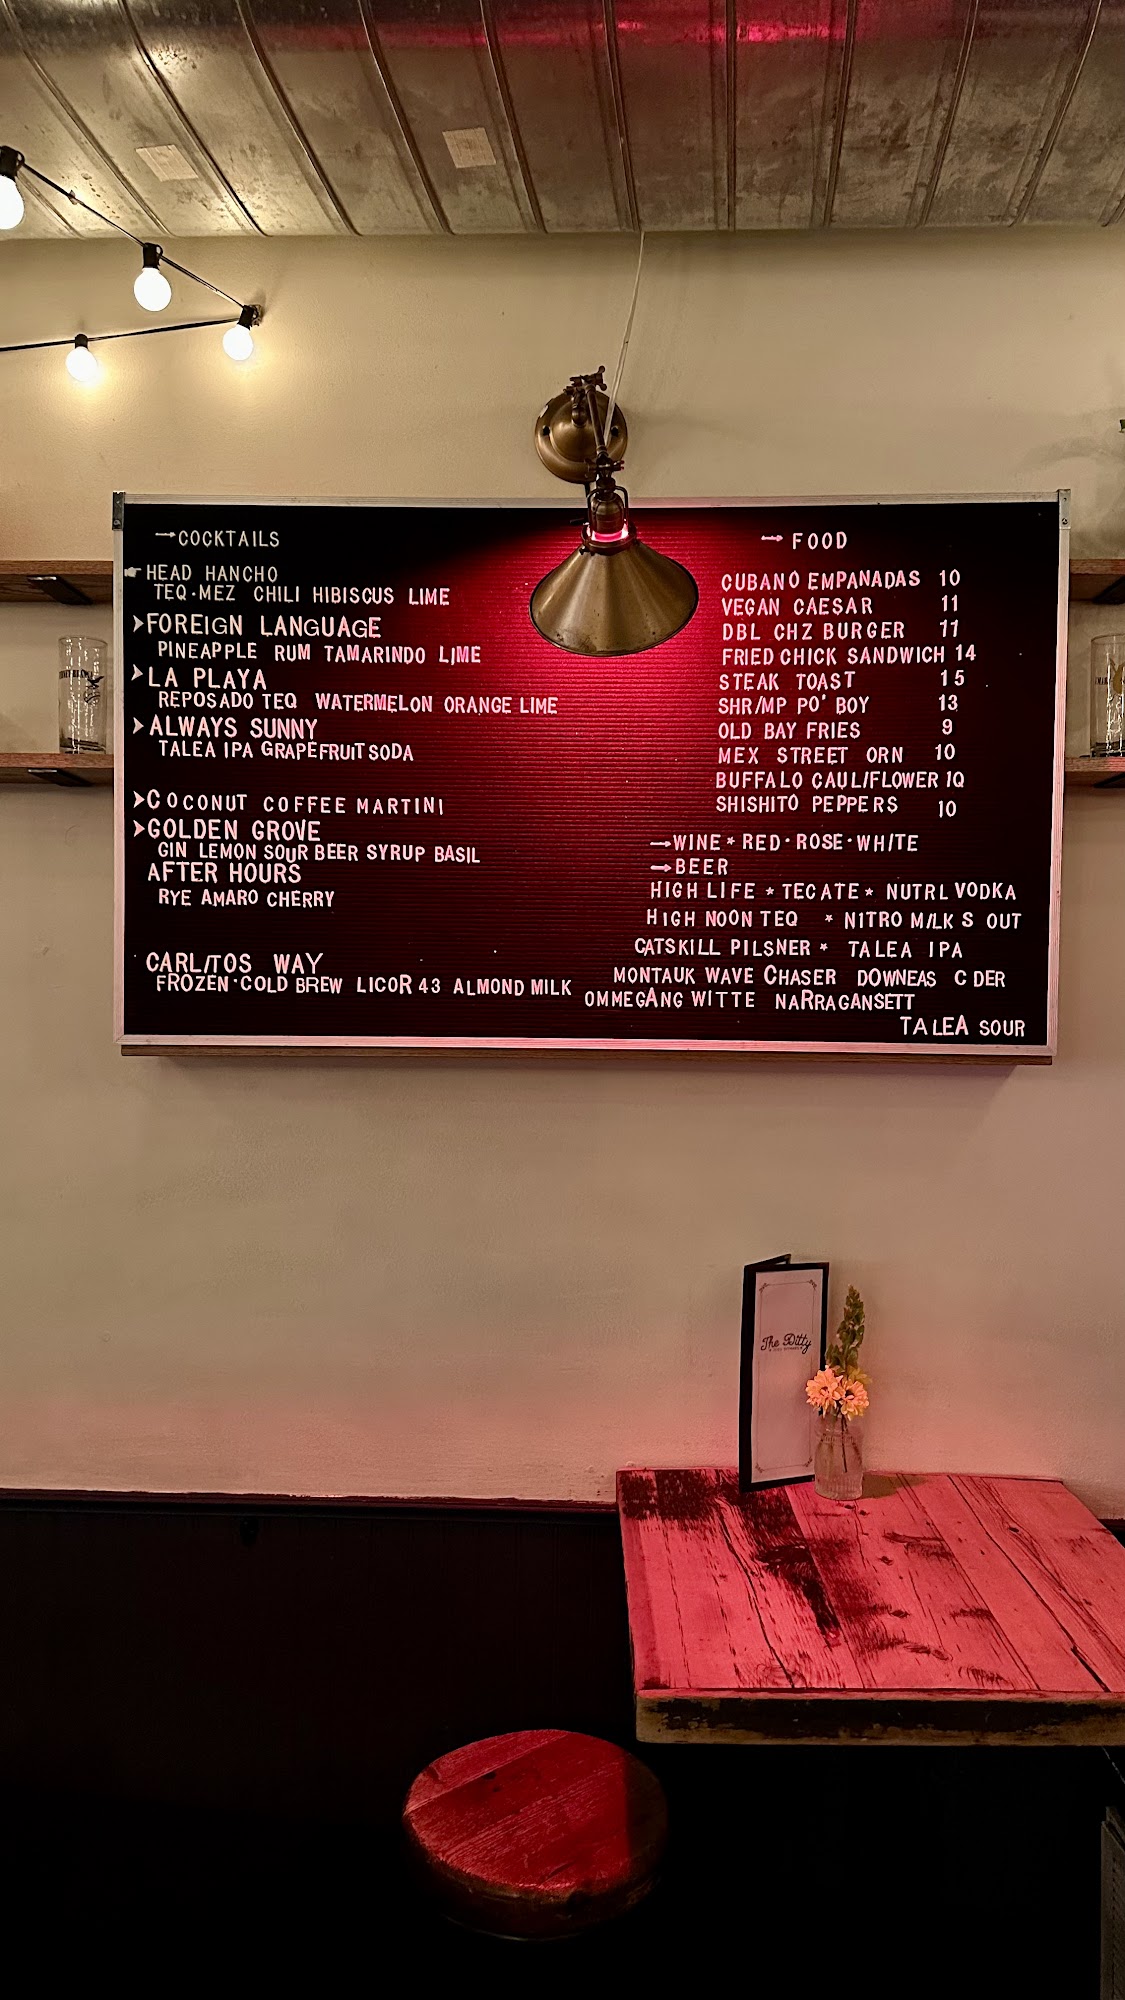 COCKTAILS
HEAD HANCHO
TEQ·MEZ CHILI HIBISCUS LIME
FOREIGN LANGUAGE
PINEAPPLE RUM TAMARINDO LIME
LA PLAYA
REPOSADO TEQ WATERMELON ORANGE LIME
ALWAYS SUNNY
TALEA IPA GRAPEFRUIT SODA
COCONUT COFFEE MARTINI
GOLDEN GROVE
GIN LEMON SOUR BEER SYRUP BASIL
AFTER HOURS
RYE AMARO CHERRY
CARLITOS WAY
FROZEN·COLD BREW LICOR 43 ALMOND MILK
FOOD
CUBANO EMPANADAS 10
VEGAN CAESAR 11
DBL CHZ BURGER 11
FRIED CHICK SANDWICH 14
STEAK TOAST 15
SHRIMP PO' BOY 13
OLD BAY FRIES 9
MEX STREET ORN 10
BUFFALO CAULIFLOWER 10
SHISHITO PEPPERS 10
WINE * RED · ROSE · WHITE
BEER
HIGH LIFE * TECATE * NUTRL VODKA
HIGH NOON TEQ * NITRO MILK S OUT
CATSKILL PILSNER * TALEA IPA
MONTAUK WAVE CHASER DOWNEAS C DER
OMMEGANG WITTE NARRAGANSETT
TALEA SOUR
The Ditty